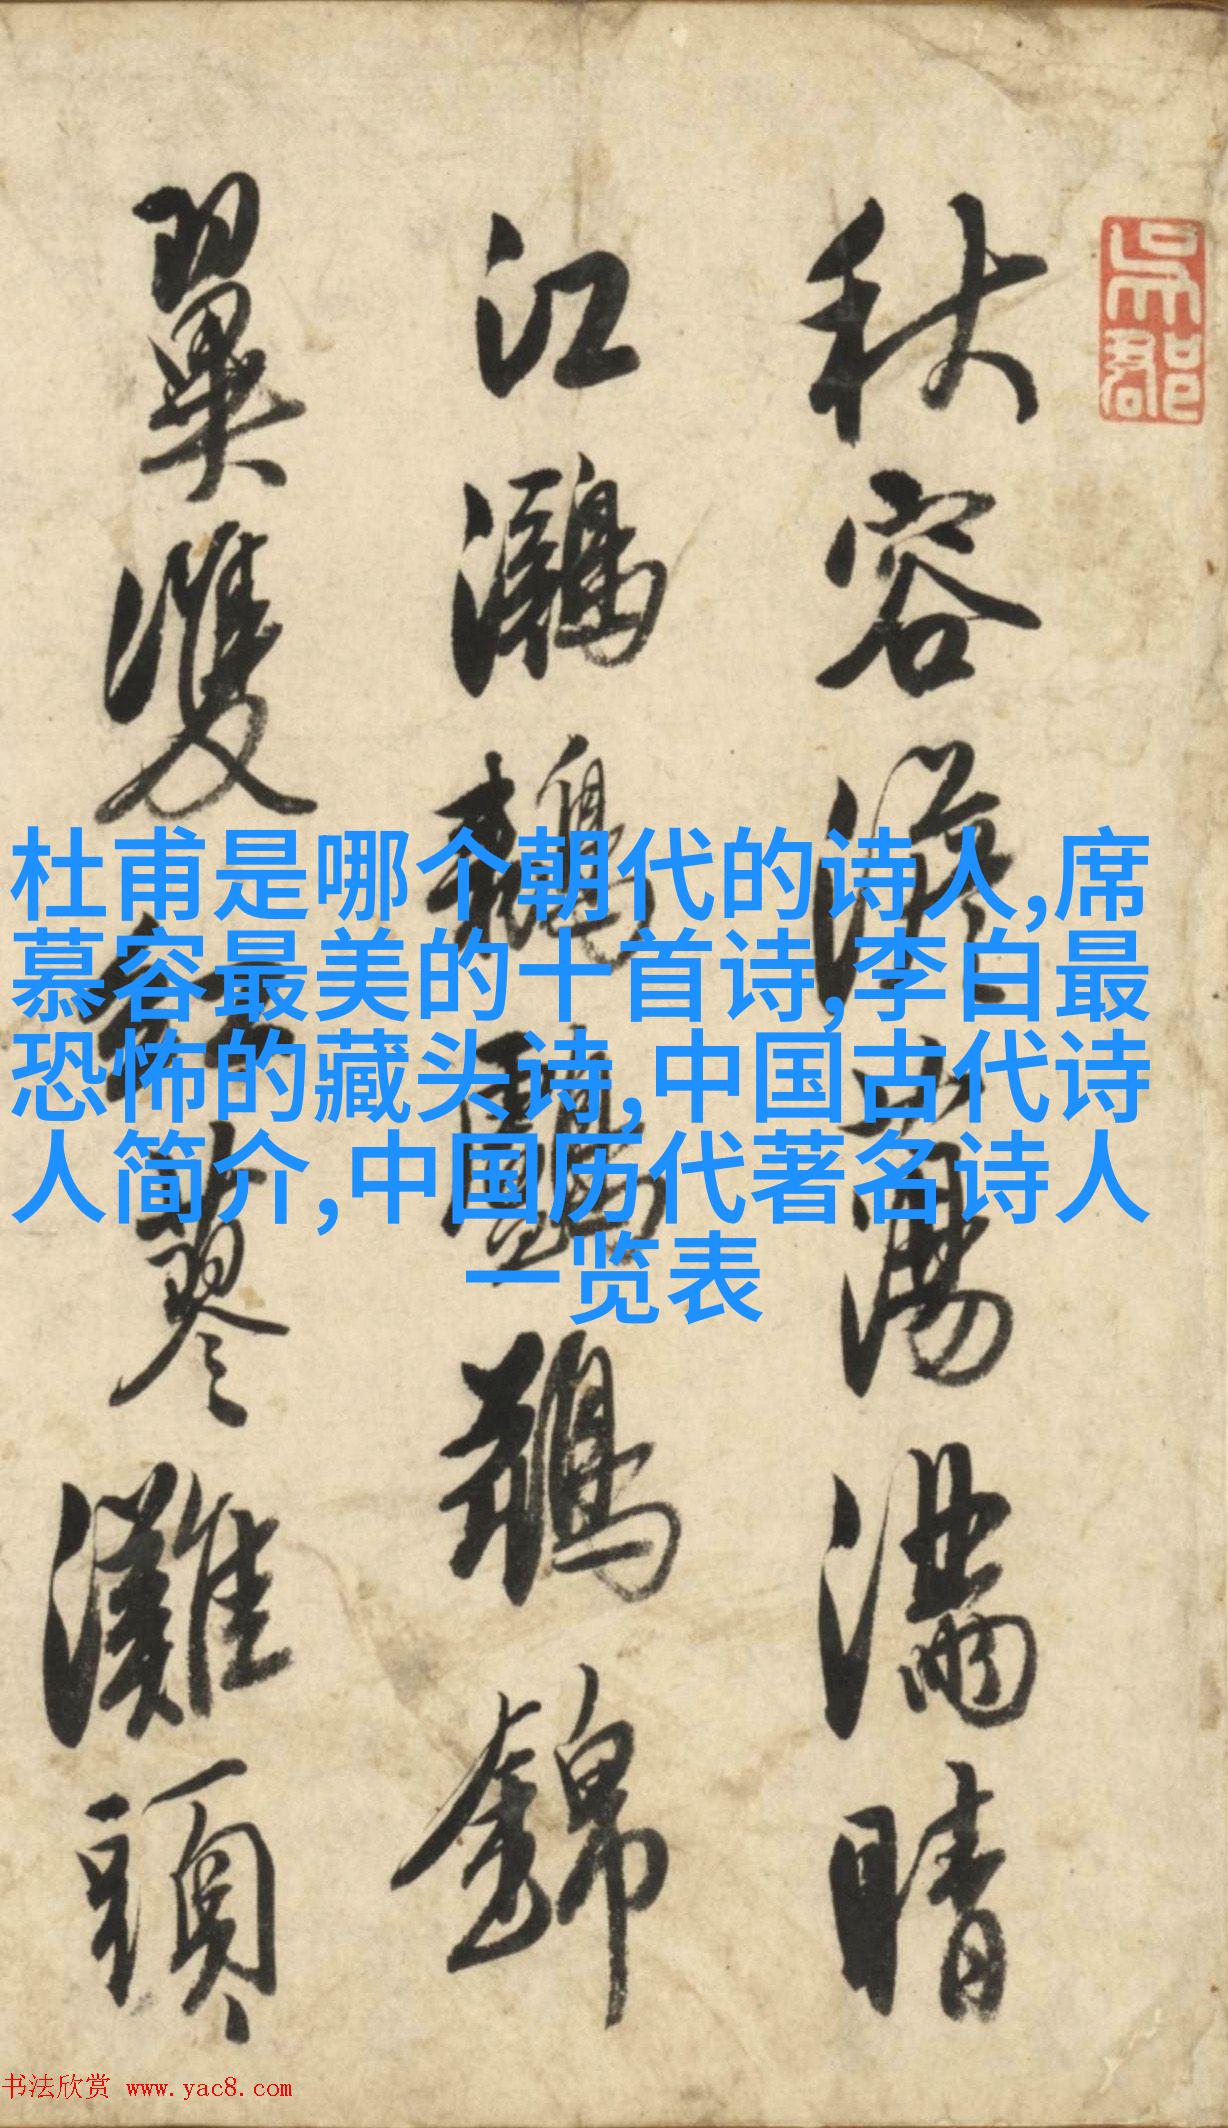 秋容澹蕩滿晴
江鸂鶒
鵝錦
翼雙紅蓼灘頭
吳郡
杜甫是哪个朝代的诗人,席
慕容最美的十首诗,李白最
恐怖的藏头诗,中国古代诗
人简介,中国历代著名诗人
一览表
书法欣赏 www.yac8.com